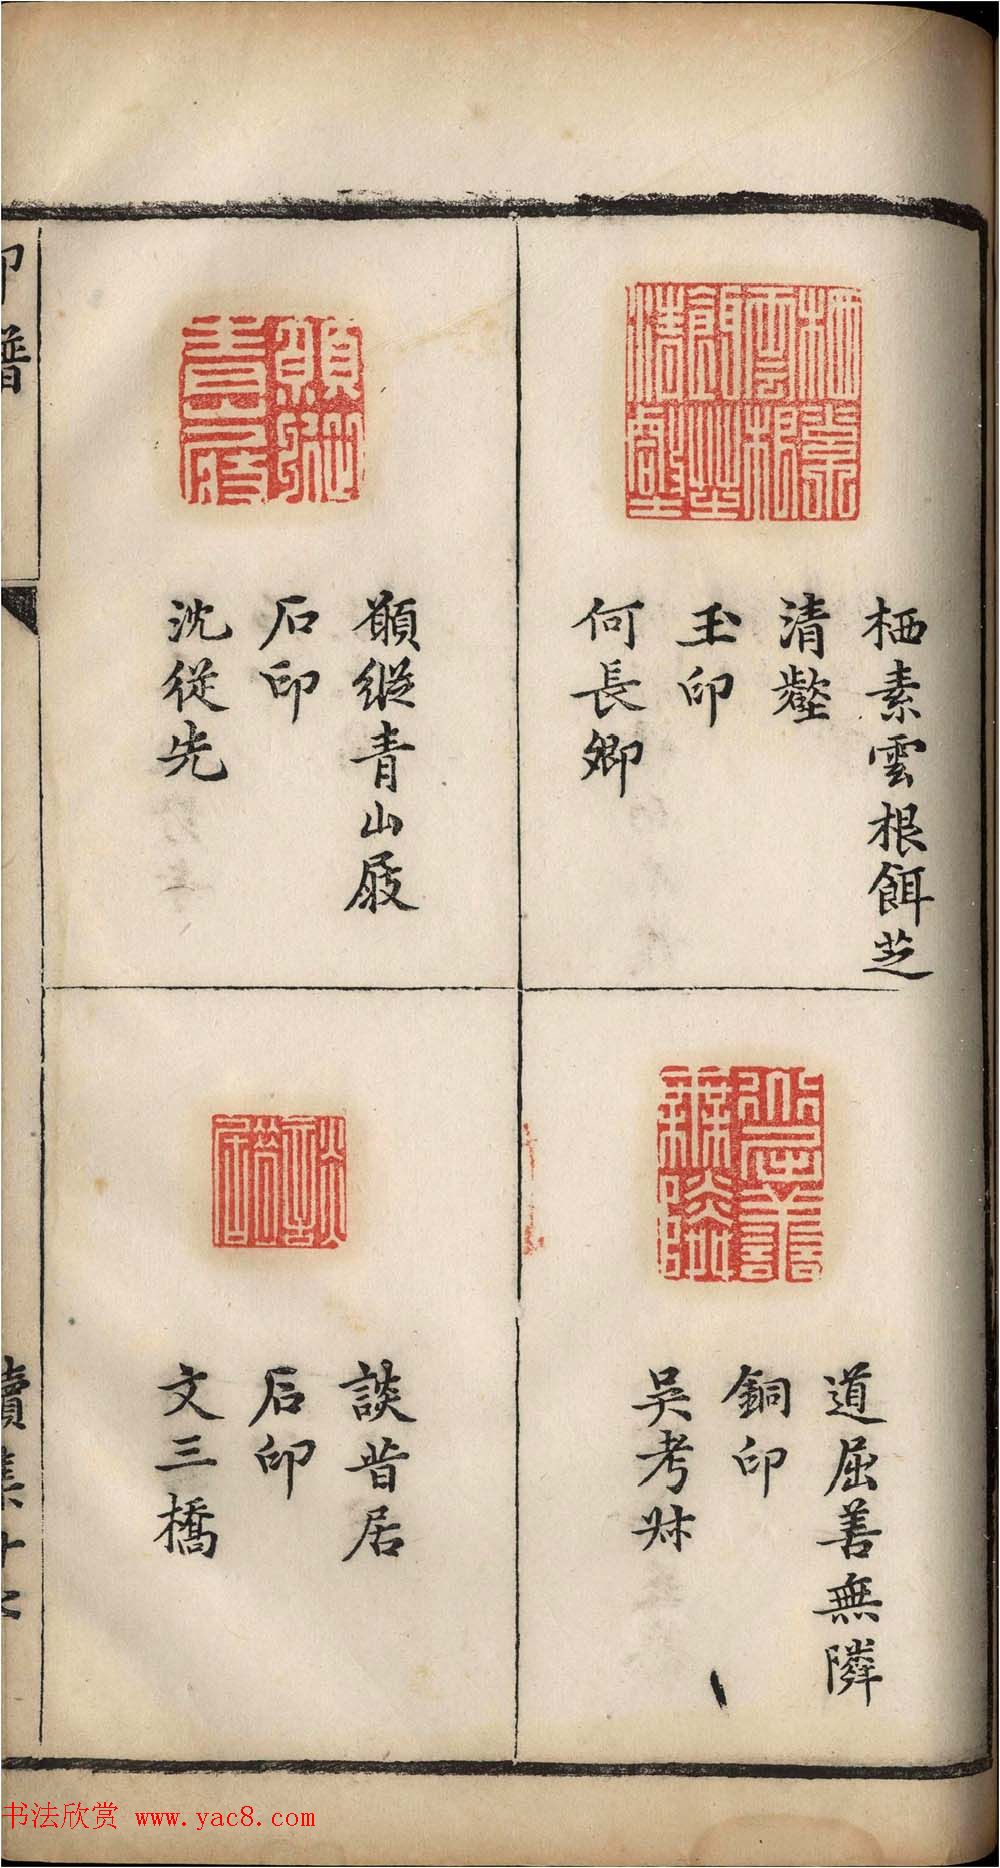 栖素雲根餌芝
清壑
玉印
何長卿
道屈善無隣
銅印
吳考叔
願縱青山屐
石印
沈從先
談昔居
石印
文三橋
印譜
續集
书法欣赏 www.yac8.com